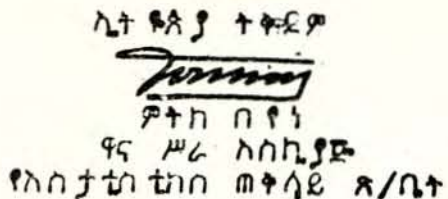 ኢትዮጵያ ትቅደም
ምትኩ በየነ
ዋና ሥራ አስኪያጅ
የእስታቲስቲክስ ጠቅላይ ጽ/ቤት